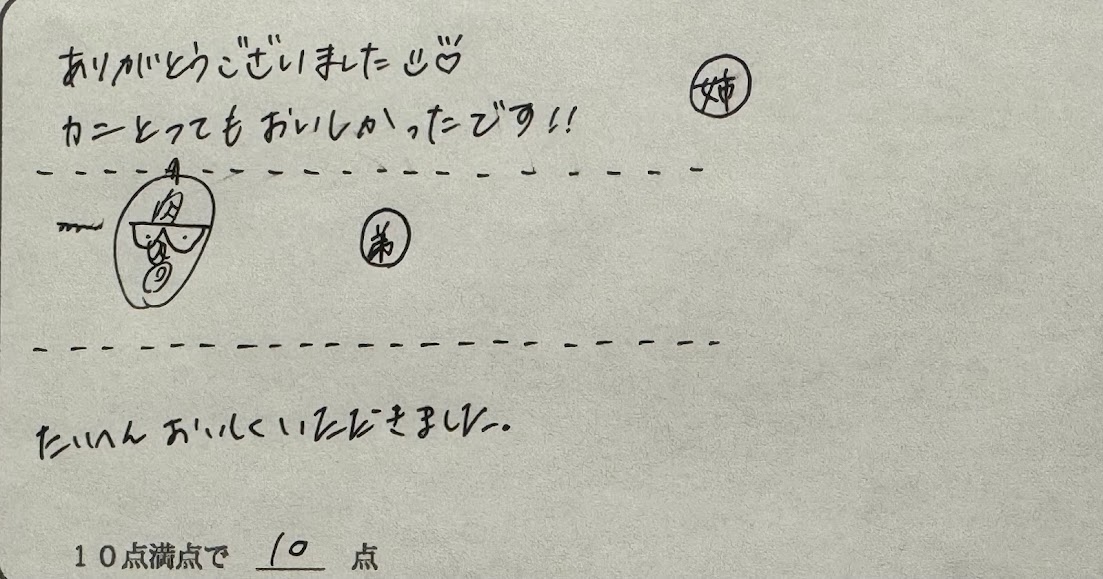 ありがとうございました
カニとってもおいしかったです!!
姉
肉
弟
たいへんおいしくいただきました。
10点満点で 10 点